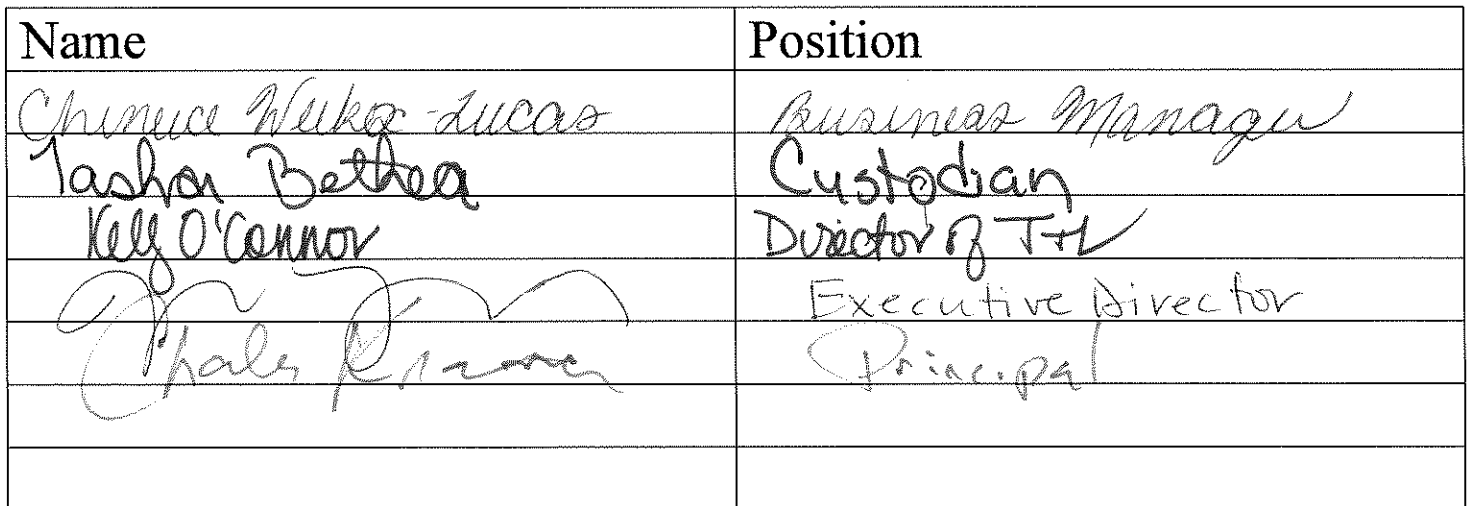 Name Position
Weeks-Lucas Business Manager
Tasha Bethea Custodian
Kelly O'Connor Director of T+L
Executive Director
Charles Principal